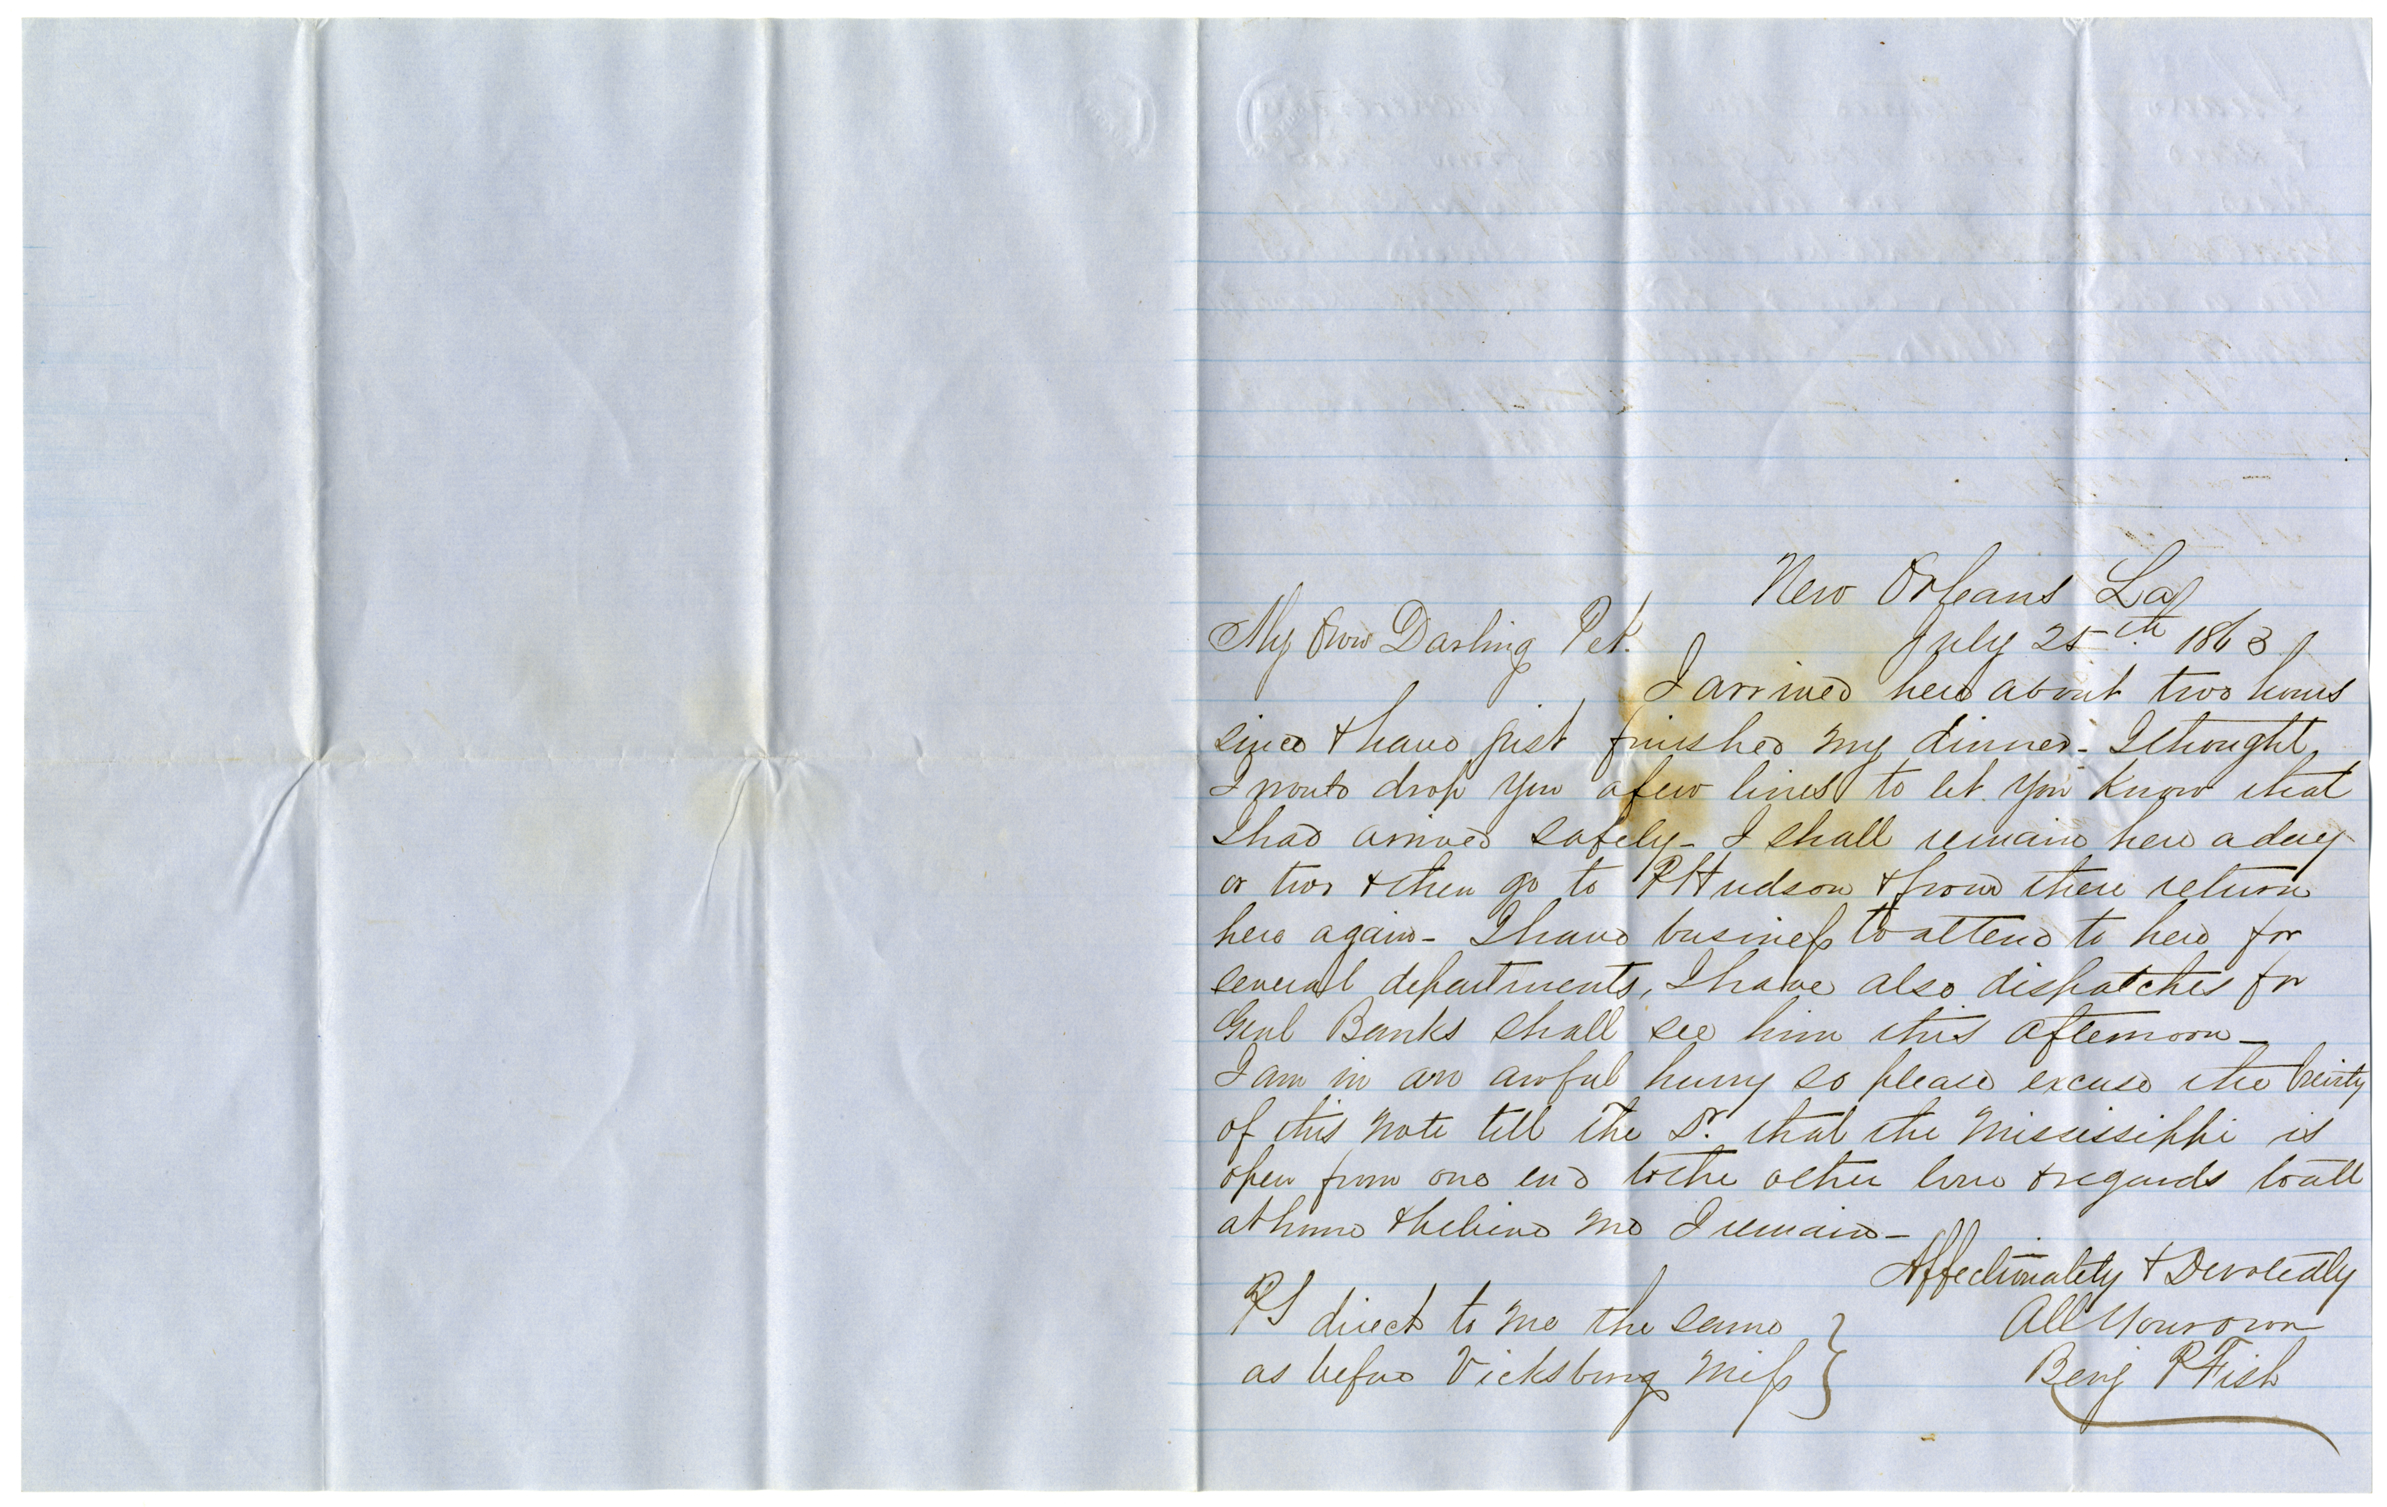 New Orleans La
My Own Darling Pet. July 25th 1863
I arrived here about two hours
since & have just finished my dinner - I thought
I would drop you a few lines to let you know that
I had arrived safely - I shall remain here a day
or two & then go to Pt Hudson & from there return
here again - I have business to attend to here for
several departments, I have also dispatches for
Genl Banks shall see him this afternoon -
I am in an awful hurry so please excuse the brevity
of this note tell the Dr. that the Mississippi is
open from one end to the other love & regards to all
at home & believe me I remain -
Affectionately & Devotedly
All Your own
Benj P Fish
PS direct to me the same
as before Vicksburg Miss